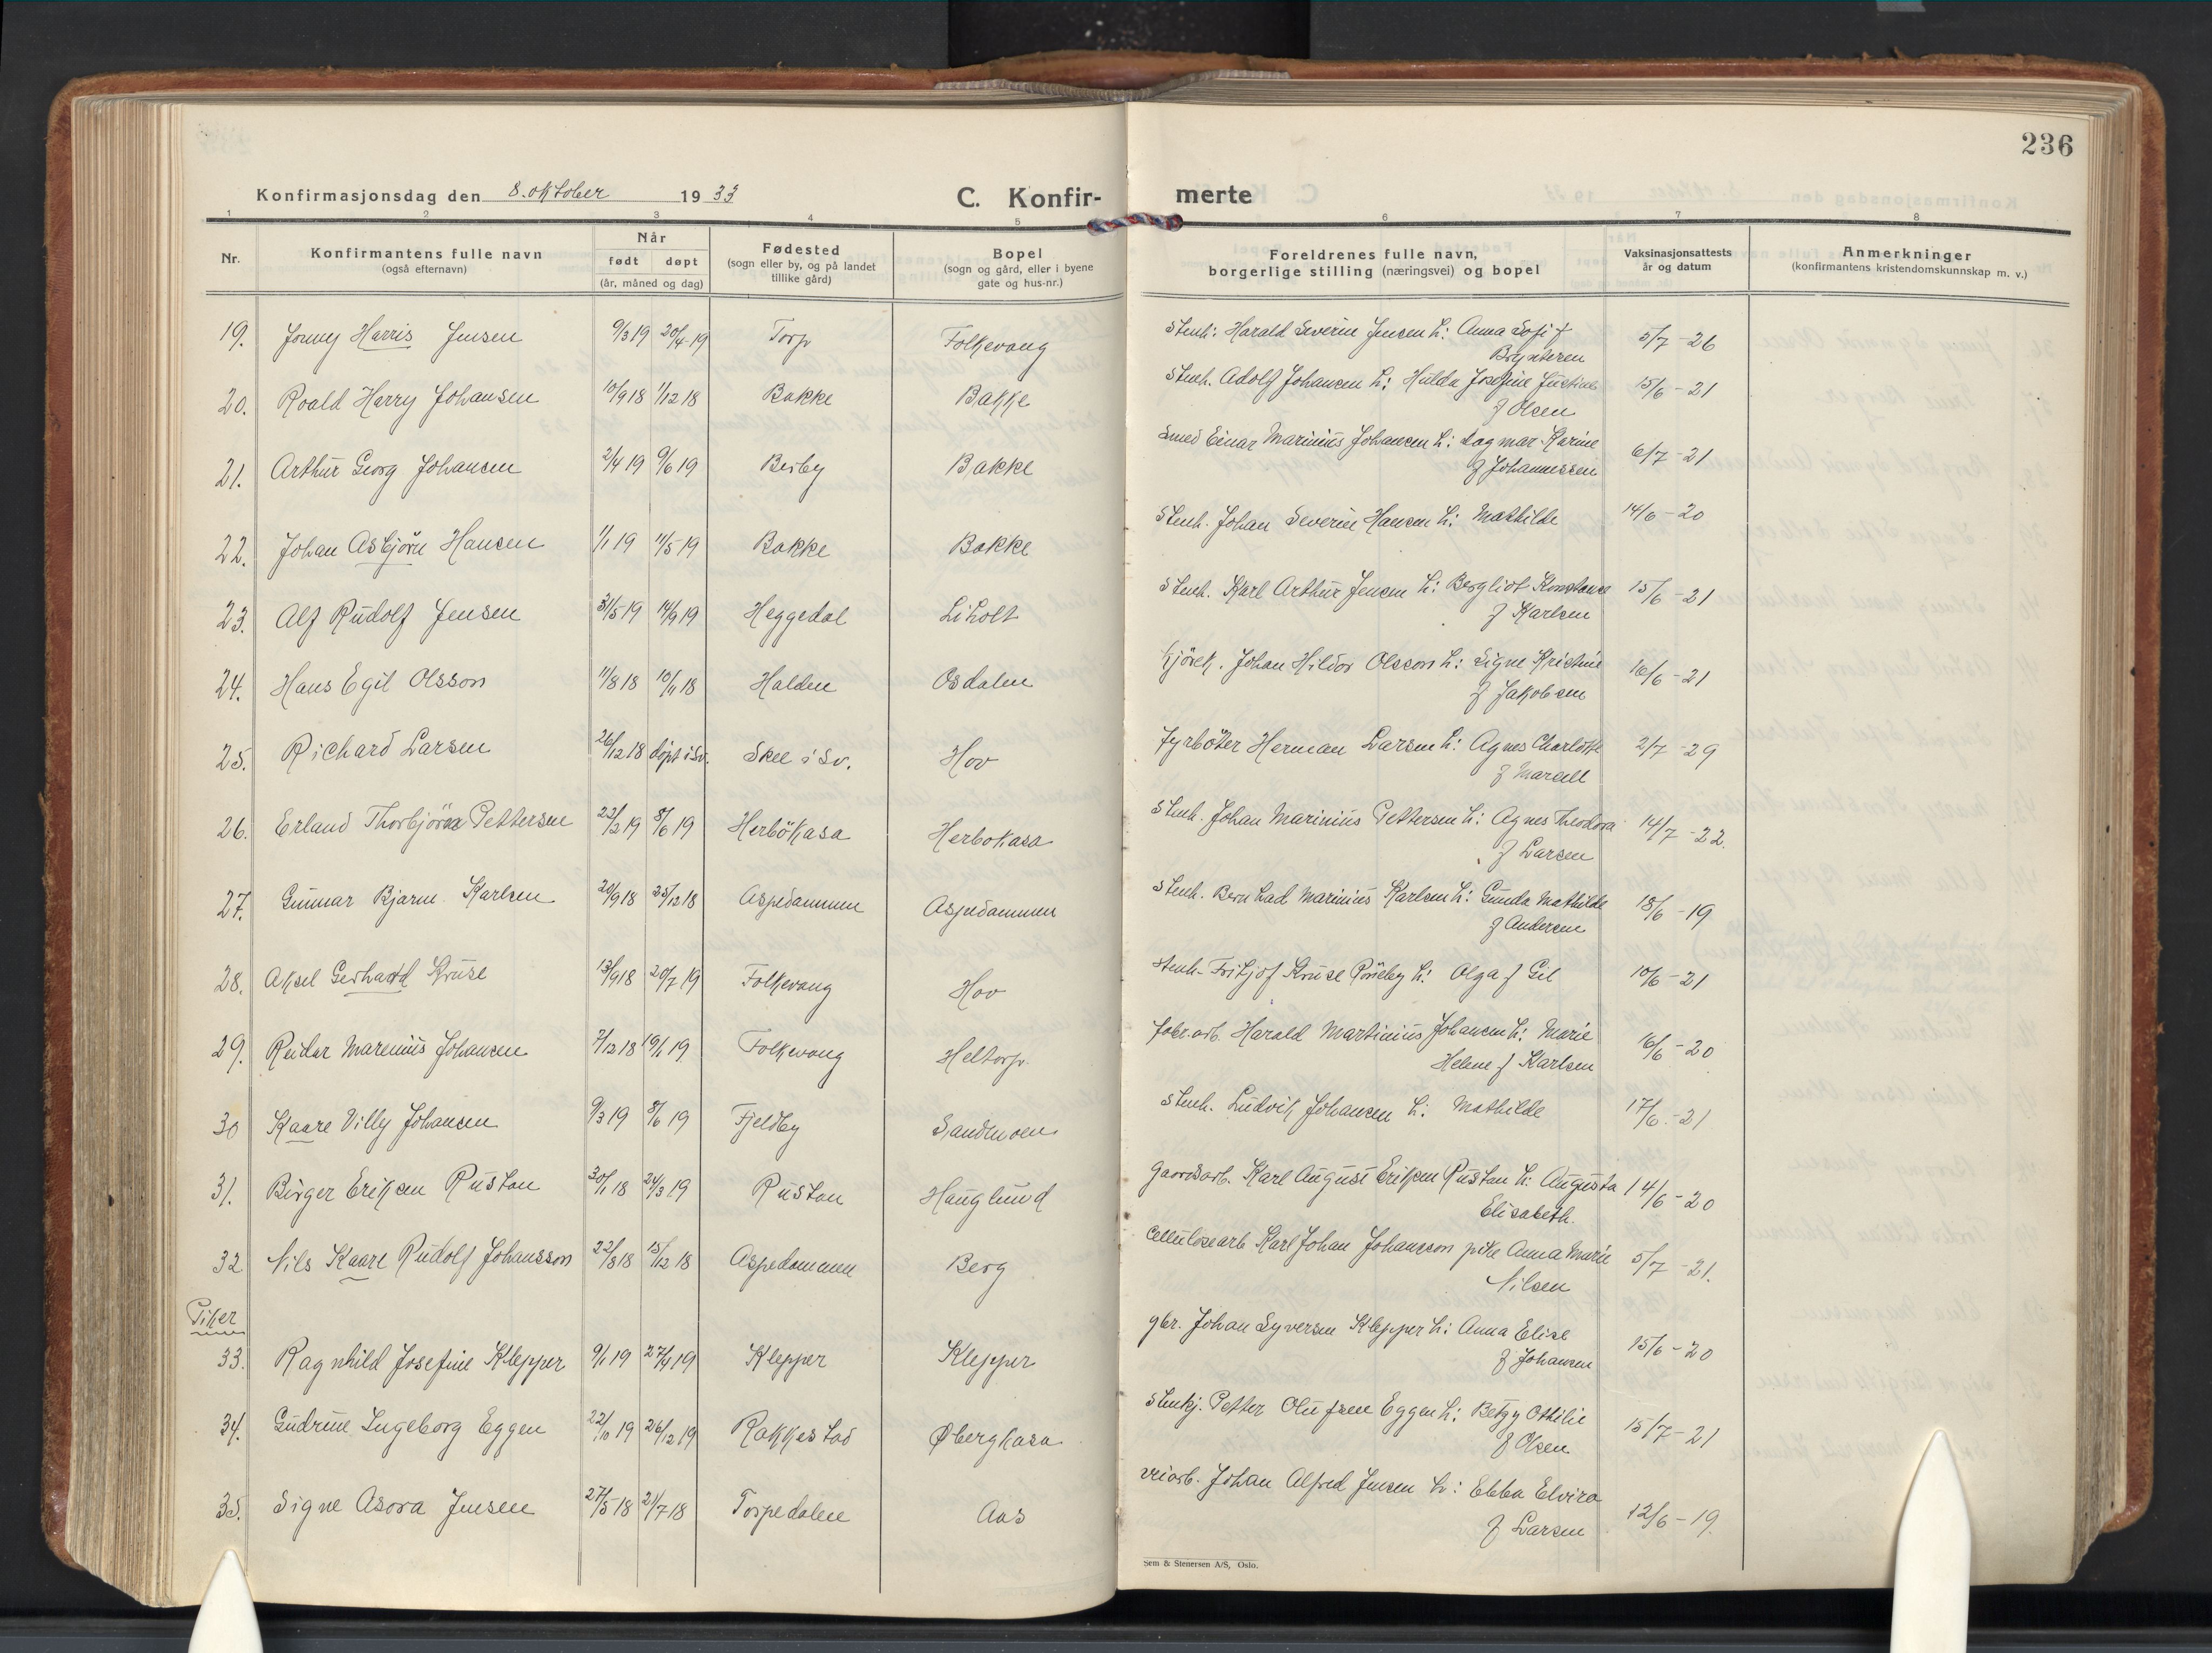 236
Konfirmasjonsdag den 8. oktober 1933
C. Konfir-
merte
1 2 3 4 5 6 7 8
Nr.
Konfirmantens fulle navn
(også efternavn)
Når
født døpt
(år, måned og dag)
Fødested
(sogn eller by, og på landet
tillike gård)
Bopel
(sogn og gård, eller i byene
gate og hus-nr.)
Foreldrenes fulle navn,
borgerlige stilling (næringsvei) og bopel
Vaksinasjonsattests
år og datum
Anmerkninger
(konfirmantens kristendomskunnskap m. v.)
19. Jonny Harris Jensen 9/3 19 20/4 19 Torp Folkevang Stenh: Harald Severin Jensen h: Anna Sofi f 5/7 - 26
Brynteren
20. Roald Harry Johansen 10/9 18 1/12 18 Bakke Bakke Stenh. Adolf Johansen h: Hulda Josefine Justine 15/6 - 21
f Olsen
21. Arthur Georg Johansen 2/4 19 9/6 19 Berby Bakke Smed Einar Marinius Johansen h: Dagmar Karine 6/7 - 21
f Johannessen
22. Johan Asbjörn Hansen 1/1 19 11/5 19 Bakke Bakke Stenh. Johan Severin Hansen h: Mathilde 14/6 - 20
23. Alf Rudolf Jensen 31/5 19 14/9 19 Heggedal Liholt Stenh. Karl Arthur Jensen h: Bergliot Konstance 15/6 - 21
f Karlsen
24. Hans Egil Olsson 11/8 18 10/11 18 Halden Osdalen Kjörek. Johan Hildor Olsson h: Signe Kristine 16/6 - 21
f Jakobsen
25. Richard Larsen 26/12 18 döpt i Sv. Skee i Sv. Hov Fyrböter Herman Larsen h: Agnes Charlotte 2/7 - 29
f Marell
26. Erland Thorbjörn Pettersen 22/2 19 8/6 19 Herbökasa Herbokasa Stenh. Johan Marinius Pettersen h: Agnes Theodora 14/7 - 22.
f Larsen
27. Gunnar Bjarne Karlsen 20/9 18 25/12 18 Aspedammen Aspedammen Stenh. Bernhad Marinius Karlsen h: Gunda Mathilde 18/6 - 19
f Andersen
28. Aksel Gerhard Kruse 13/9 18 20/7 19 Folkevang Hov Stenh. Fritjof Kruse h: Olga f Gil 10/6 - 21
29. Reidar Marenius Johansen 7/12 18 19/1 19 Folkevang Heltorp. Fabr. arb. Harald Martinius Johansen h: Marie 16/6 - 20
Helene f Karlsen
30 Kaare Villy Johansen 9/3 19 8/6 19 Fjeldby Sandmoen Stenh. Ludvik Johansen h: Mathilde 17/6 - 21
31. Birger Eriksen Rustan 30/1 18 24/3 19 Rustan Hauglund Gaardsarb. Karl August Eriksen Rustan h: Augusta 14/6 - 20
Elisabeth.
32 Nils Kaare Rudolf Johansson 22/8 18 15/12 18 Aspedammen Berg Cellulosearb Karl Johan Johansson pike Anna Marie 5/7 - 21.
Nilsen
Piker
33. Ragnhild Josefine Klepper 9/1 19 27/4 19 Klepper Klepper gbr. Johan Syversen Klepper h: Anna Elise 15/6 - 20
f Johansen
34. Gudrun Ingeborg Eggen 22/10 19 26/12 19 Rakkestad Øbergkasa Stenkj. Petter Olufsen Eggen h: Betzy Othilie 15/7 - 21
f Olsen
35. Signe Asora Jensen 27/5 18 21/7 18 Torpedalen Aas veiarb. Johan Alfred Jensen h: Ebba Elvira 12/6 - 19.
f Larsen
Sem & Stenersen A/S, Oslo.